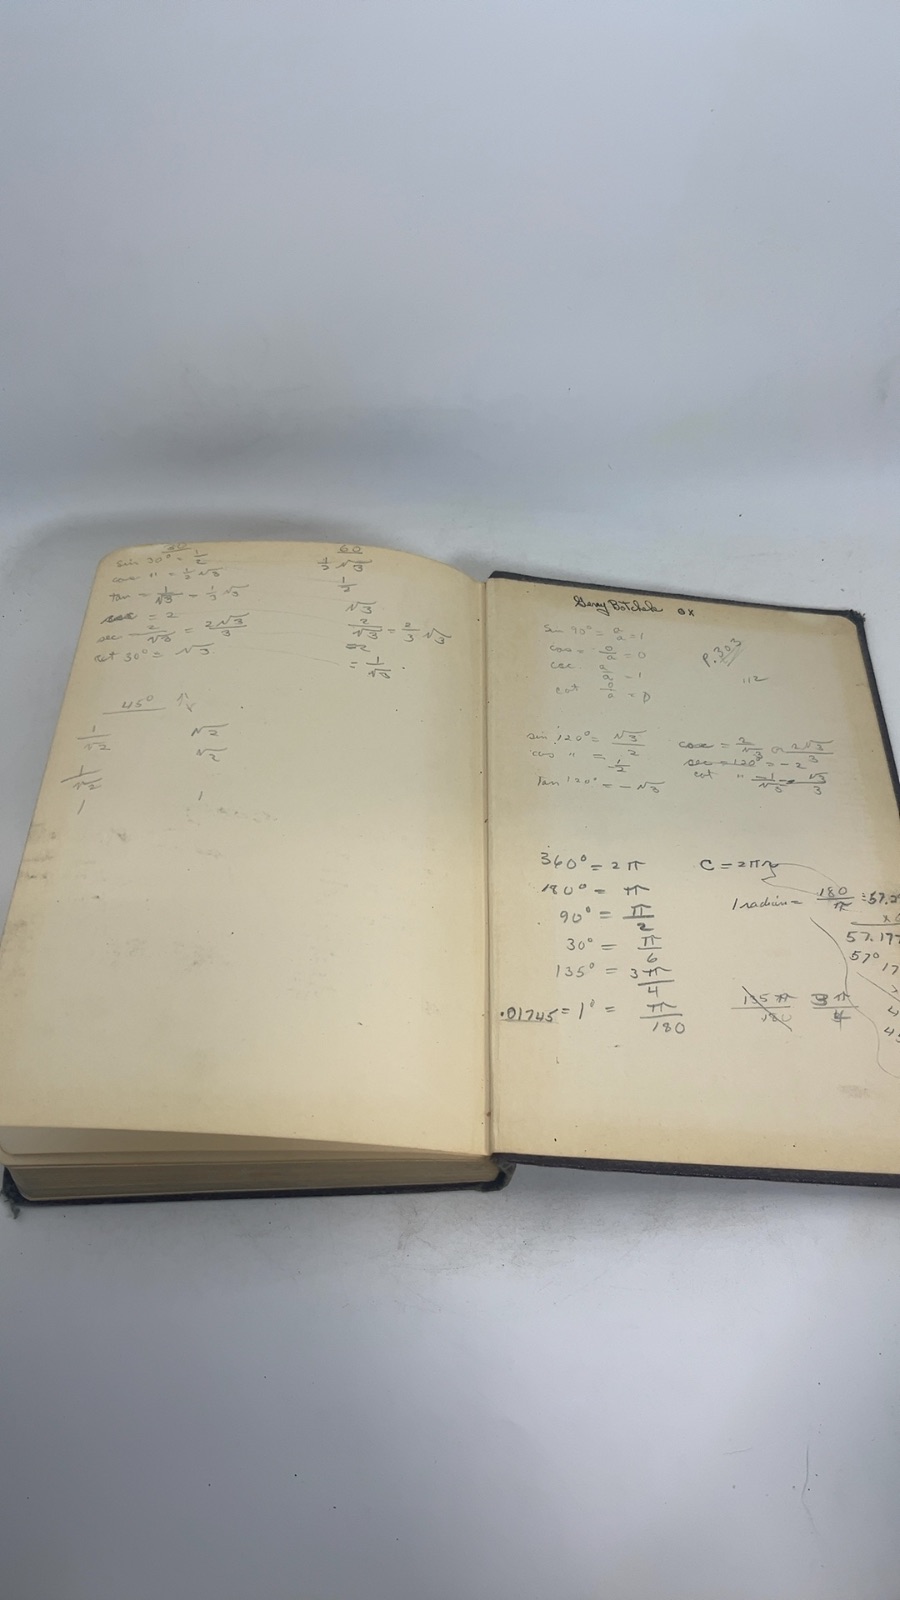 30
sin 30° = 1/2
cos " = 1/2 √3
tan = 1/√3 = 1/3 √3
csc = 2
sec 2/√3 = 2√3/3
cot 30° = √3
60
1/2 √3
1/2
√3
2/√3 = 2/3 √3
= 2
= 1/√3
45°
1/√2 √2
√2
1/√2
1 1
Gerry
sin 90° = a/a = 1
cos = 0/a = 0
csc a/a = 1
cot 0/a = 0
p. 303
112
sin 120° = √3/2
cos " = 1/2
tan 120° = -√3
csc = 2/√3 or 2√3/3
sec 120° = -2
cot " -1/√3 √3/3
360° = 2π
180° = π
90° = π/2
30° = π/6
135° = 3π/4
.01745 = 1° = π/180
C = 2πr
1 radian = 180/π = 57.2
57.177
57° 17
135π/180 3π/4